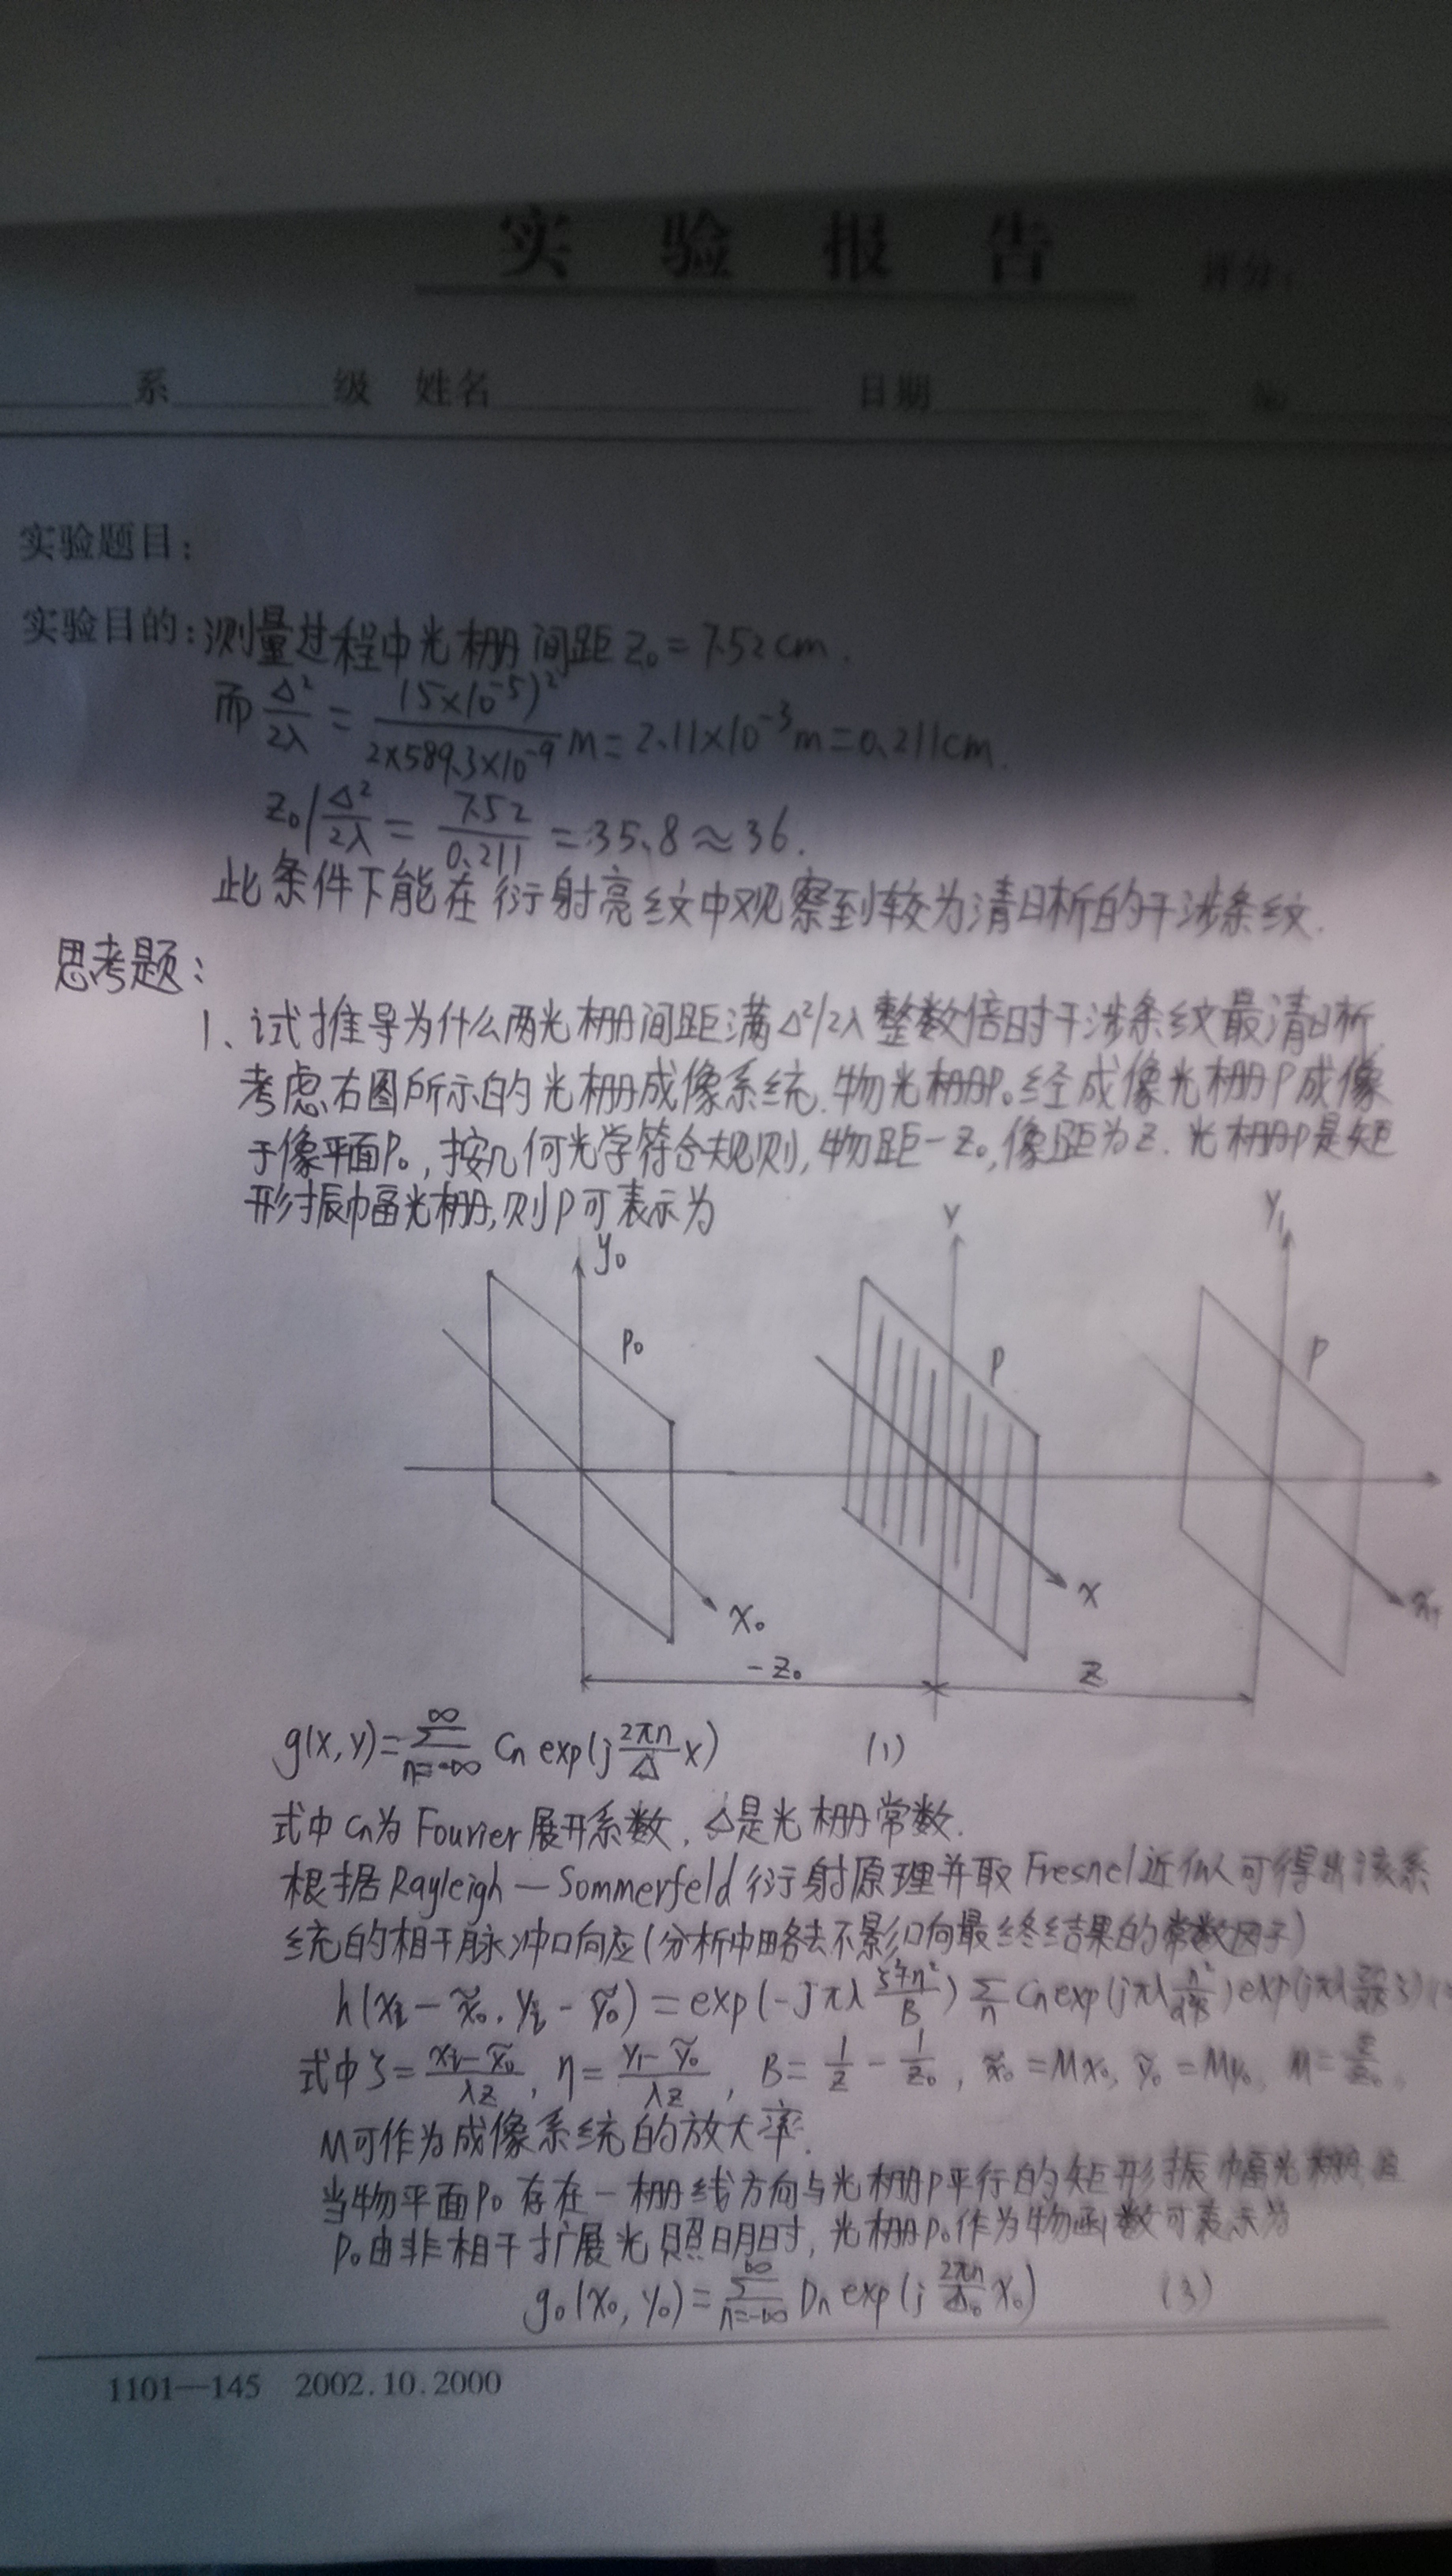 实 验 报 告 评分:
系 级 姓名 日期 №
实验题目:
实验目的: 测量过程中光栅间距 z₀ = 7.52cm.
而 Δ²/2λ = (5×10⁻⁵)²/(2×589.3×10⁻⁹) m = 2.11×10⁻³m = 0.211cm.
z₀/(Δ²/2λ) = 7.52/0.211 = 35.8 ≈ 36.
此条件下能在衍射亮纹中观察到较为清晰的干涉条纹.
思考题:
1、试推导为什么两光栅间距满Δ²/2λ整数倍时干涉条纹最清晰
考虑右图所示的光栅成像系统.物光栅P₀经成像光栅P成像
于像平面P₀,按几何光学符合规则,物距-z₀,像距为z.光栅P是矩
形振幅光栅,则P可表示为
y₀ y y₁
P₀ P P
x₀ x x₁
-z₀ z
g(x,y)=∑_{n=-∞}^{∞} Cn exp(j (2πn/Δ) x) (1)
式中Cn为Fourier展开系数,Δ是光栅常数.
根据Rayleigh—Sommerfeld衍射原理并取Fresnel近似可得出该系
统的相干脉冲响应(分析中略去不影响最终结果的常数因子)
h(xᵢ-x̃₀, yᵢ-ỹ₀) = exp(-jπλ (ζ²+η²)/B) ∑_n Cn exp(jπλ
式中ζ=(xᵢ-x̃₀)/λz, η=(y₁-ỹ₀)/λz, B=1/z-1/z₀, x̃₀=Mx₀, ỹ₀=My₀, M=z/z₀.
M可作为成像系统的放大率.
当物平面P₀存在一栅线方向与光栅P平行的矩形振幅光栅,且
P₀由非相干扩展光照明时,光栅P₀作为物函数可表示为
g₀(x₀,y₀)=∑_{n=-∞}^{∞} Dn exp(j (2πn/Δ₀) x₀) (3)
1101—145 2002.10.2000